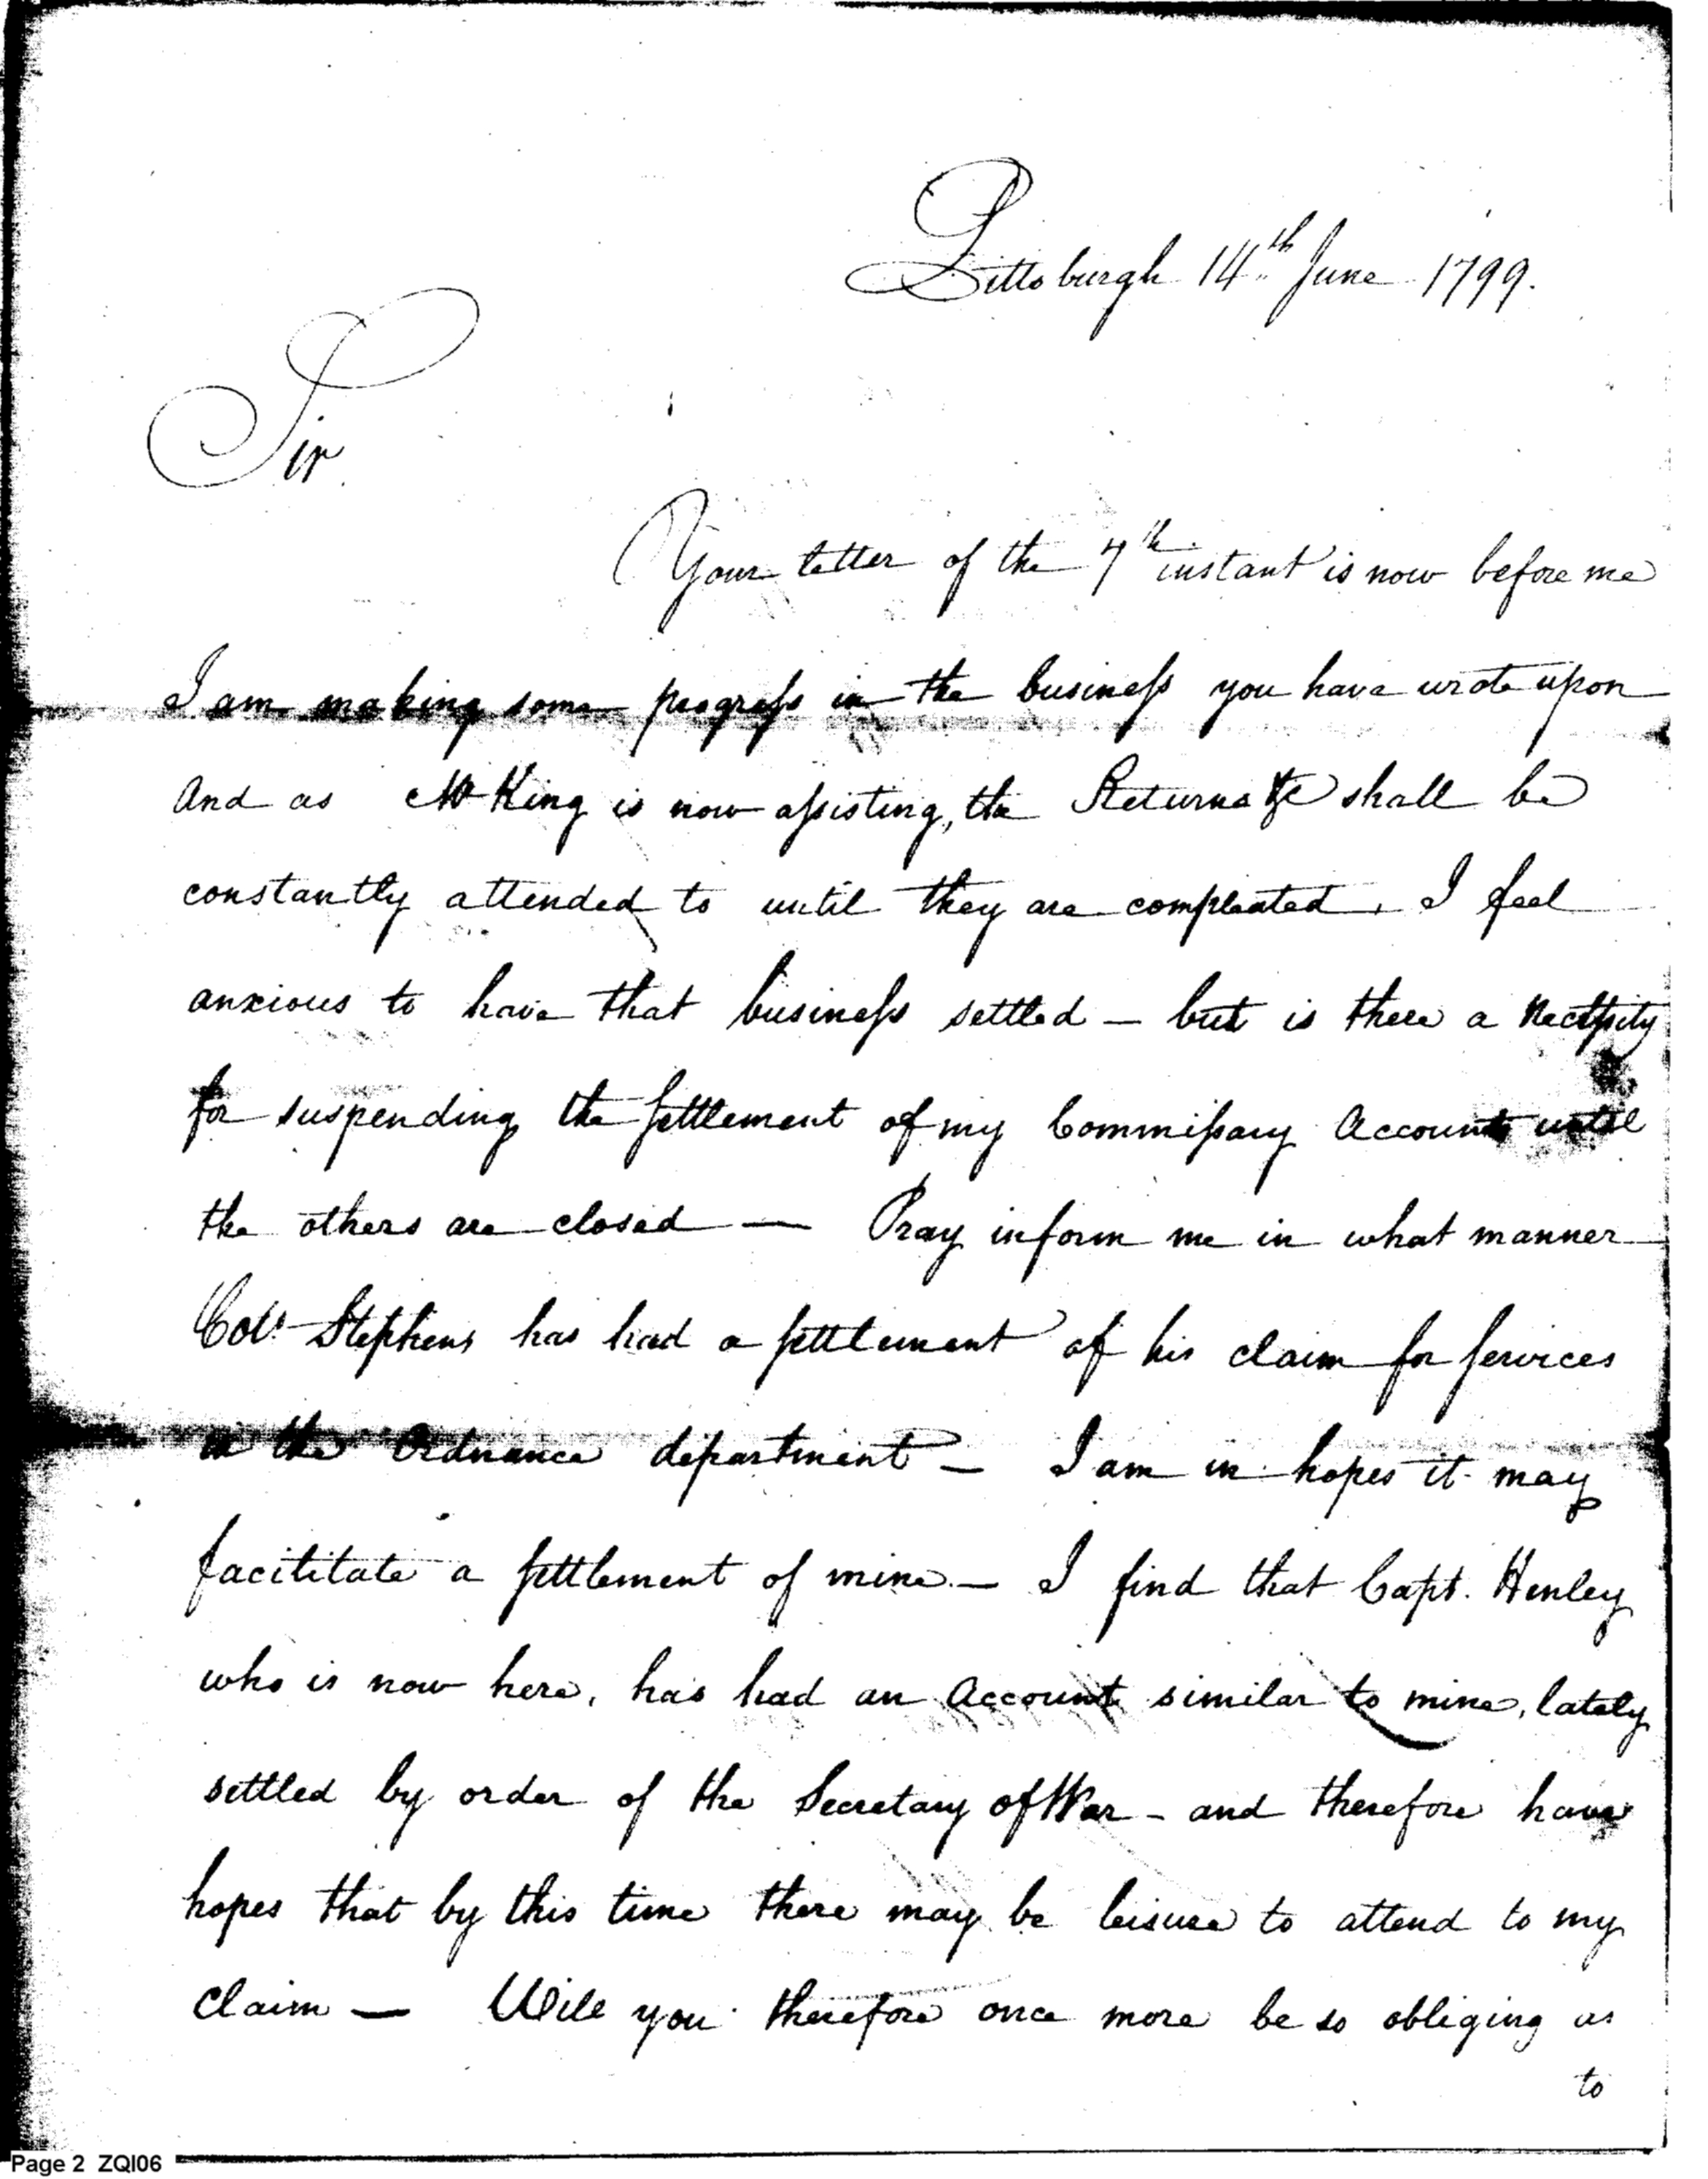 Pittsburgh 14th June 1799.
Sir
Your letter of the 7th instant is now before me
I am making some progress in the business you have wrote upon
And as Mr King is now assisting, the Returns &c shall be
constantly attended to until they are compleated. I feel
anxious to have that business settled — but is there a necessity
for suspending the settlement of my Commissary Accounts until
the others are closed — Pray inform me in what manner
Col. Stephens has had a settlement of his claim for services
in the Ordnance department — I am in hopes it may
facilitate a settlement of mine — I find that Capt. Henley
who is now here, has had an Account similar to mine, lately
settled by order of the Secretary of War — and therefore have
hopes that by this time there may be leisure to attend to my
Claim — Will you therefore once more be so obliging as
to
Page 2 ZQI06